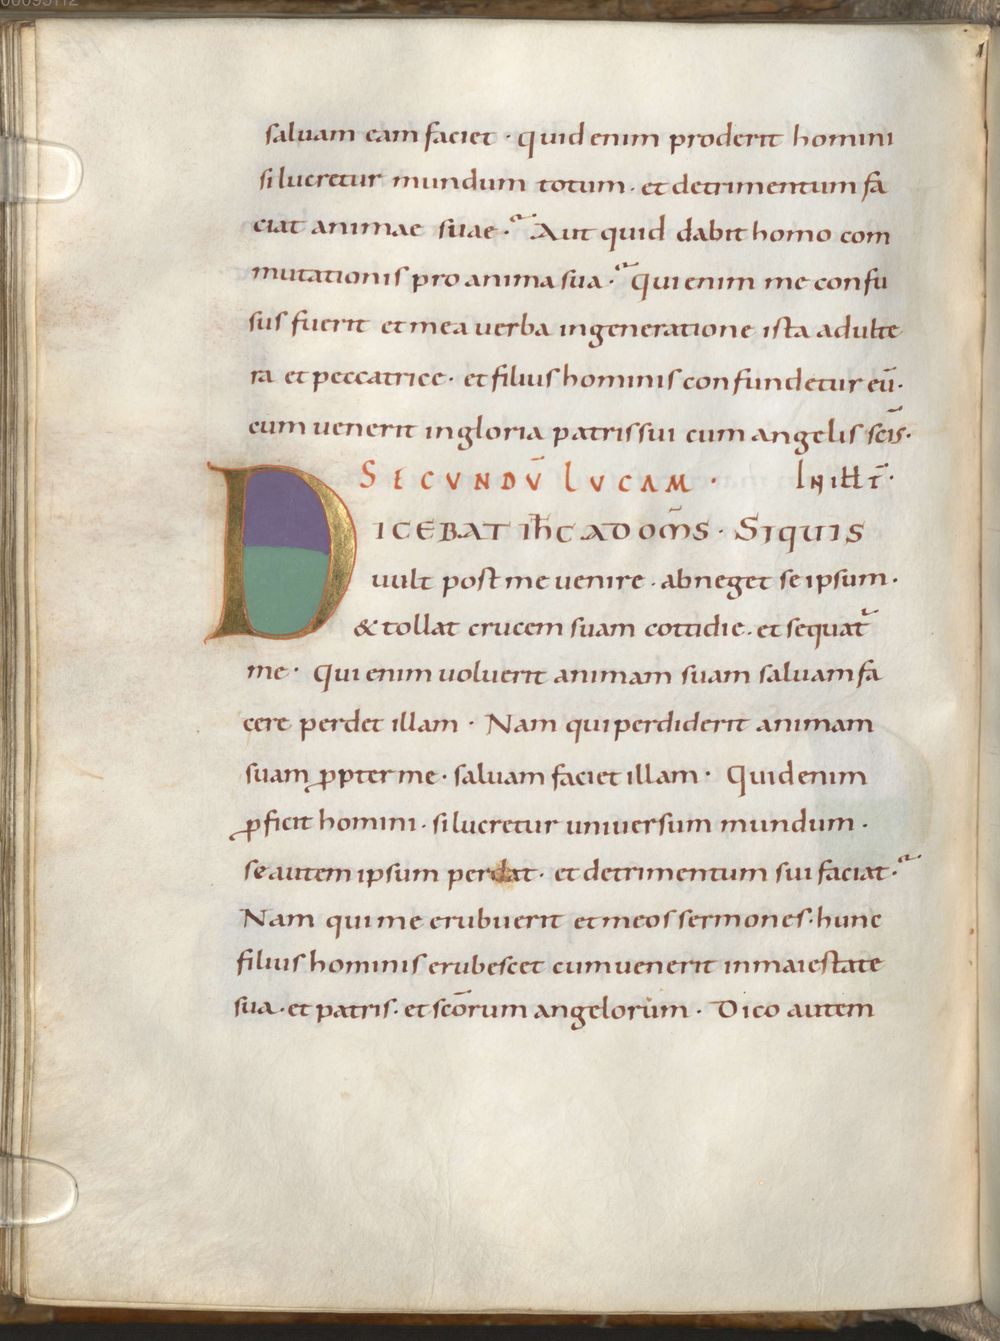 saluam eam faciet · quid enim proderit homini
si lucretur mundum totum · et detrimentum fa
ciat animae suae · Aut quid dabit homo com
mutationis pro anima sua · qui enim me confu
sus fuerit et mea uerba in generatione ista adulte
ra et peccatrice · et filius hominis confundetur eū ·
cum uenerit in gloria patris sui cum angelis sc̄is ·
SECUNDŪ LUCAM ·
DICEBAT ih̄c AD OM̄S · Si quis
uult post me uenire · abneget se ipsum ·
& tollat crucem suam cottidie · et sequat̄
me · Qui enim uoluerit animam suam saluam fa
cere perdet illam · Nam qui perdiderit animam
suam ꝓpter me · saluam faciet illam · Quid enim
ꝓficit homini · si lucretur uniuersum mundum ·
se autem ipsum perdat · et detrimentum sui faciat ·
Nam qui me erubuerit et meos sermones · hunc
filius hominis erubescet cum uenerit in maiestate
sua · et patris · et sc̄orum angelorum · Dico autem